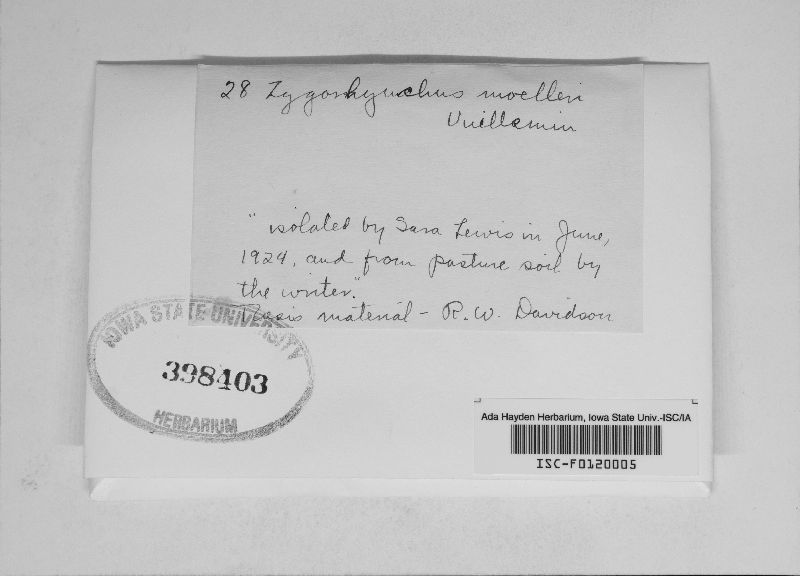 28 Zygorhynchus moelleri
Vuillemin
"isolated by Sara Lewis in June,
1924, and from pasture soil by
the writer."
Thesis material - R.W. Davidson
IOWA STATE UNIVERSITY
398403
HERBARIUM
Ada Hayden Herbarium, Iowa State Univ.-ISC/IA
ISC-F0120005